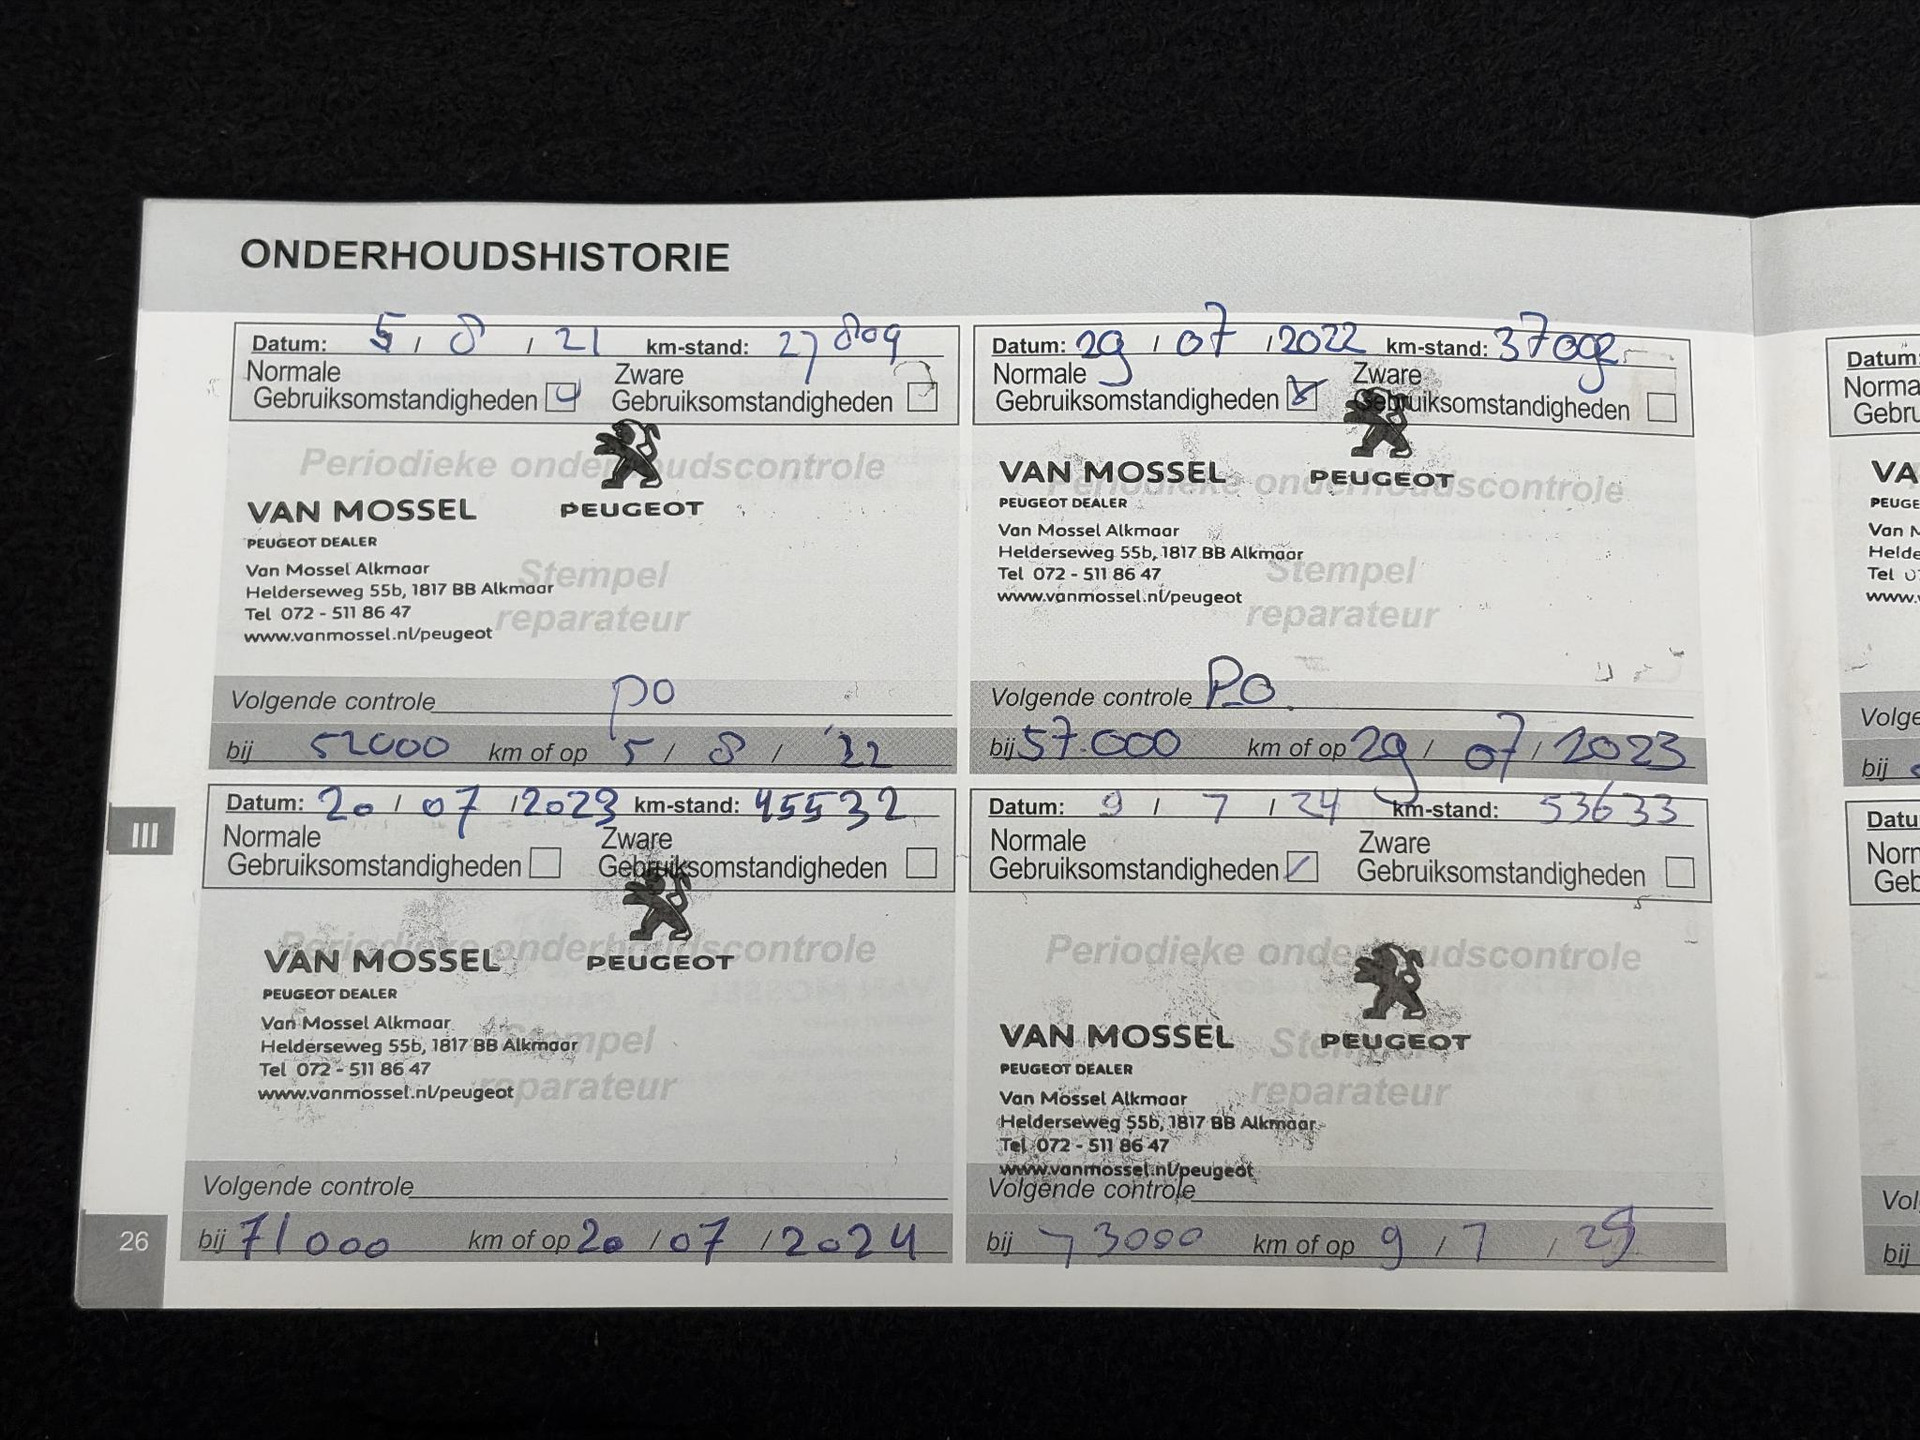 ONDERHOUDSHISTORIE
Datum: 5 / 8 / 21 km-stand: 27809
Normale Zware
Gebruiksomstandigheden Gebruiksomstandigheden
Periodieke onderhoudscontrole
VAN MOSSEL PEUGEOT
PEUGEOT DEALER
Van Mossel Alkmaar
Stempel
Helderseweg 55b, 1817 BB Alkmaar
Tel 072 - 511 86 47
reparateur
www.vanmossel.nl/peugeot
Volgende controle PO
bij 52000 km of op 5 / 8 / '22
Datum: 29 / 07 / 2022 km-stand:
Normale Zware
Gebruiksomstandigheden Gebruiksomstandigheden
VAN MOSSEL PEUGEOT
Periodieke onderhoudscontrole
PEUGEOT DEALER
Van Mossel Alkmaar
Helderseweg 55b, 1817 BB Alkmaar
Stempel
Tel 072 - 511 86 47
www.vanmossel.nl/peugeot
reparateur
Volgende controle PO.
bij 57.000 km of op 29 / 07 / 2023
Datum: 20 / 07 / 2023 km-stand: 45532
Normale Zware
Gebruiksomstandigheden Gebruiksomstandigheden
Periodieke onderhoudscontrole
VAN MOSSEL PEUGEOT
PEUGEOT DEALER
Van Mossel Alkmaar
Stempel
Helderseweg 55b, 1817 BB Alkmaar
Tel 072 - 511 86 47
reparateur
www.vanmossel.nl/peugeot
Volgende controle
bij 71000 km of op 20 / 07 / 2024
Datum: 9 / 7 / 24 km-stand: 53633
Normale Zware
Gebruiksomstandigheden Gebruiksomstandigheden
Periodieke onderhoudscontrole
VAN MOSSEL PEUGEOT
Stempel
PEUGEOT DEALER
reparateur
Van Mossel Alkmaar
Helderseweg 55b, 1817 BB Alkmaar
Tel 072 - 511 86 47
www.vanmossel.nl/peugeot
Volgende controle
bij 73000 km of op 9 / 7 / 25
III
26
Datum:
Norma
Gebru
VA
PEUGE
Van M
Helde
Tel
www.
Volge
bij
Datu
Norn
Geb
Vol
bij